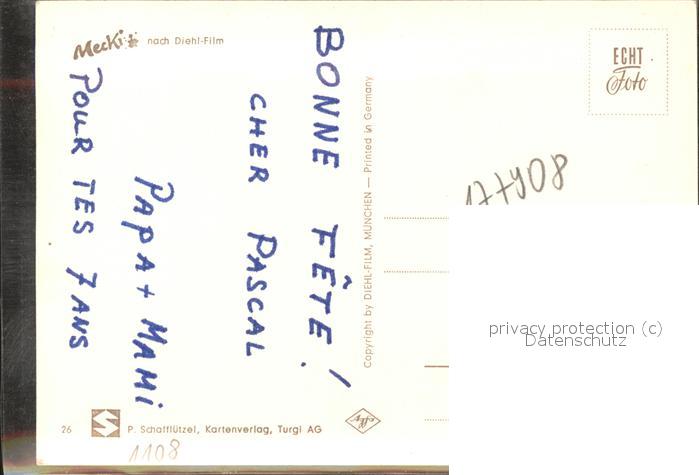 Mecki nach Diehl-Film
BONNE FÊTE!
CHER PASCAL
PAPA + MAMI
POUR TES 7 ANS
Copyright by DIEHL-FILM, MÜNCHEN — Printed in Germany
ECHT
Foto
177908
privacy protection (c)
Datenschutz
26
P. Schafflützel, Kartenverlag, Turgi AG
Agfa
1108